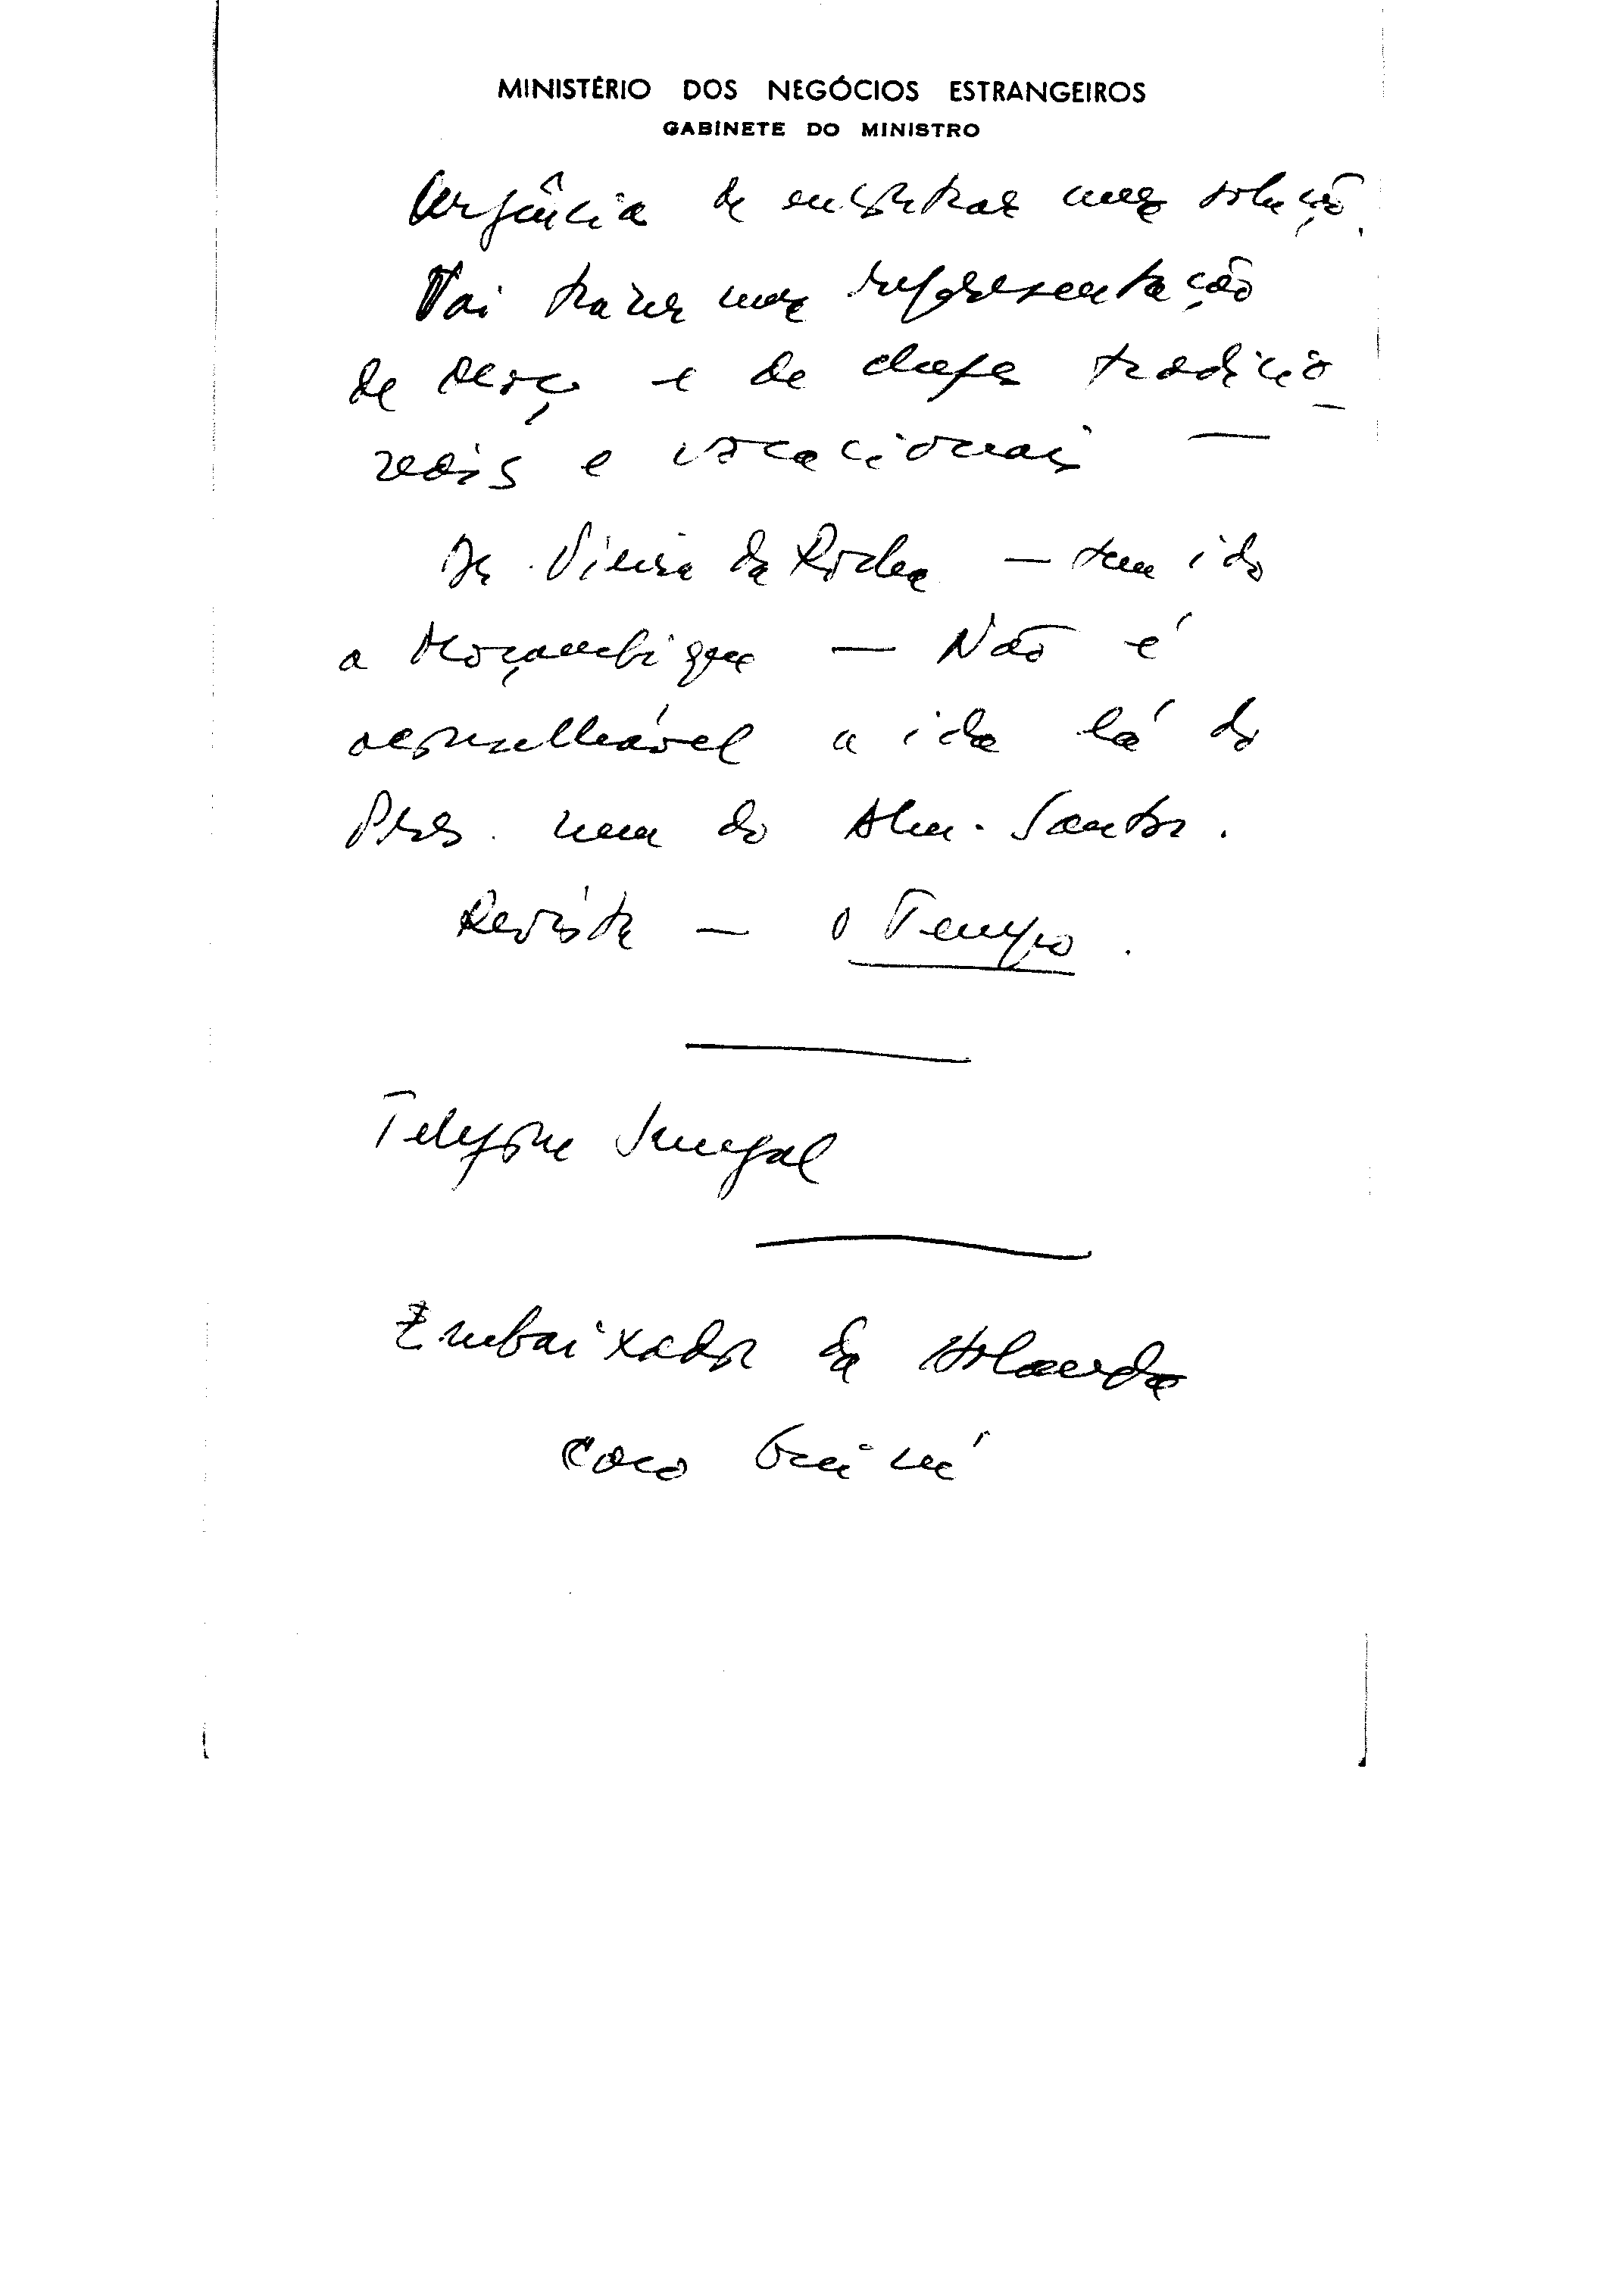 MINISTÉRIO DOS NEGÓCIOS ESTRANGEIROS
GABINETE DO MINISTRO
Urgência de encontrar uma solução.
Vai trazer uma representação
de e de chefes tradicio-
nais e vocacionais —
Dr. Vieira da Rocha — tem ido
a Moçambique — Não é
aconselhável a ida lá do
Pres. nem do Alm. Santos.
Revista — O Tempo.
Telefone Senegal
Embaixador da Holanda
caso Guiné